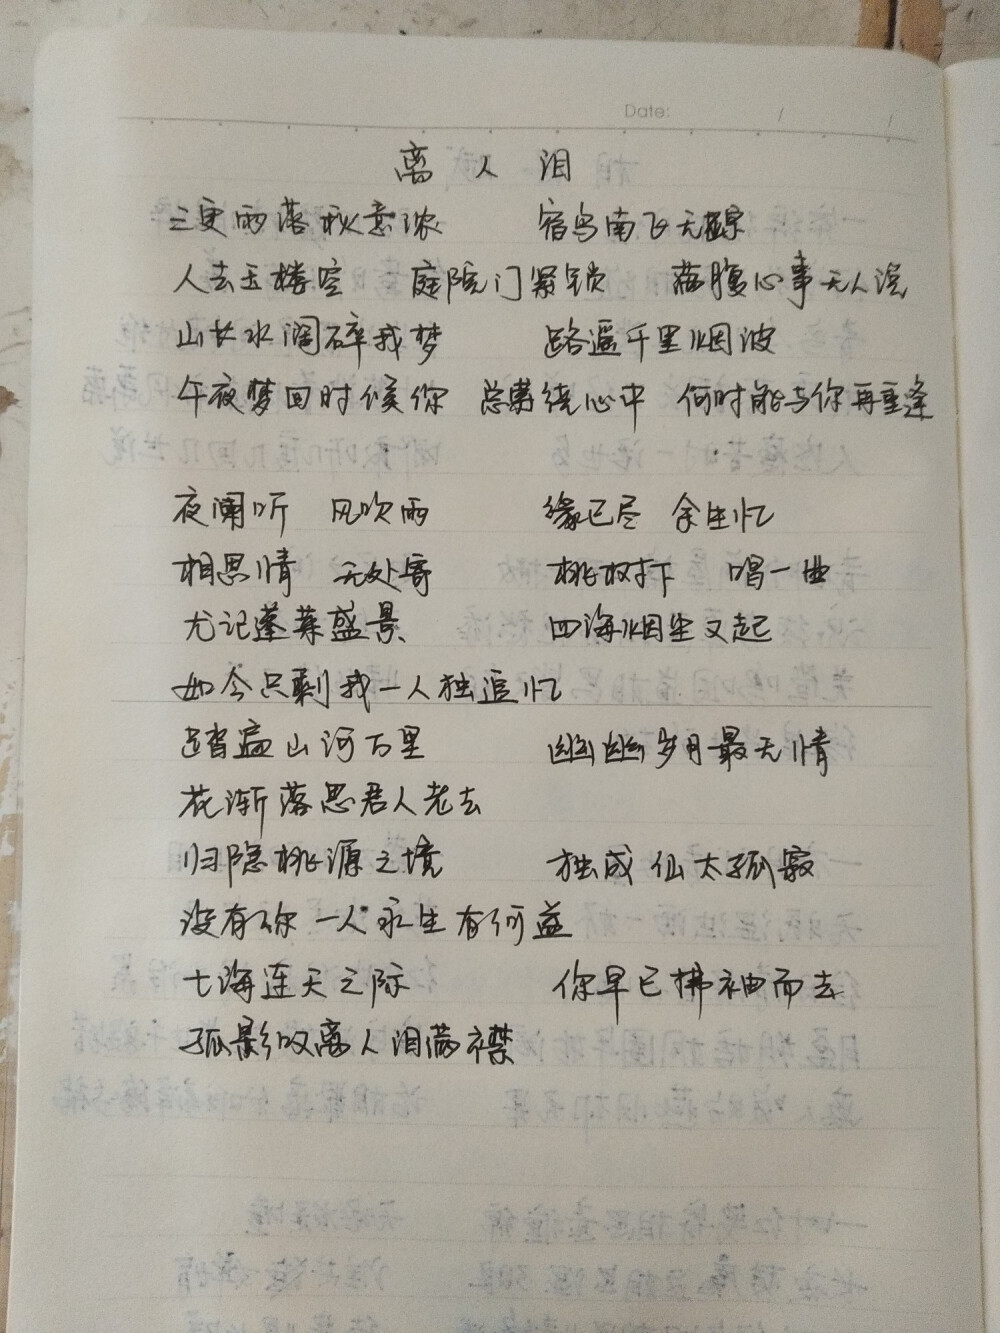 Date: / /
离人泪
三更雨落秋意浓 宿鸟南飞无踪
人去玉楼空 庭院门紧锁 满腹心事无人说
山长水阔碎我梦 路遥千里烟波
午夜梦回时候你 总萦绕心中 何时能与你再重逢
夜阑听 风吹雨 缘已尽 余生忆
相思情 无处寄 桃树下 唱一曲
尤记蓬莱盛景 四海烟尘又起
如今只剩我一人独追忆
踏遍山河万里 幽幽岁月最无情
花渐落思君人老去
归隐桃源之境 独成仙太孤寂
没有你一人永生有何益
七海连天之际 你早已拂袖而去
孤影叹离人泪满襟